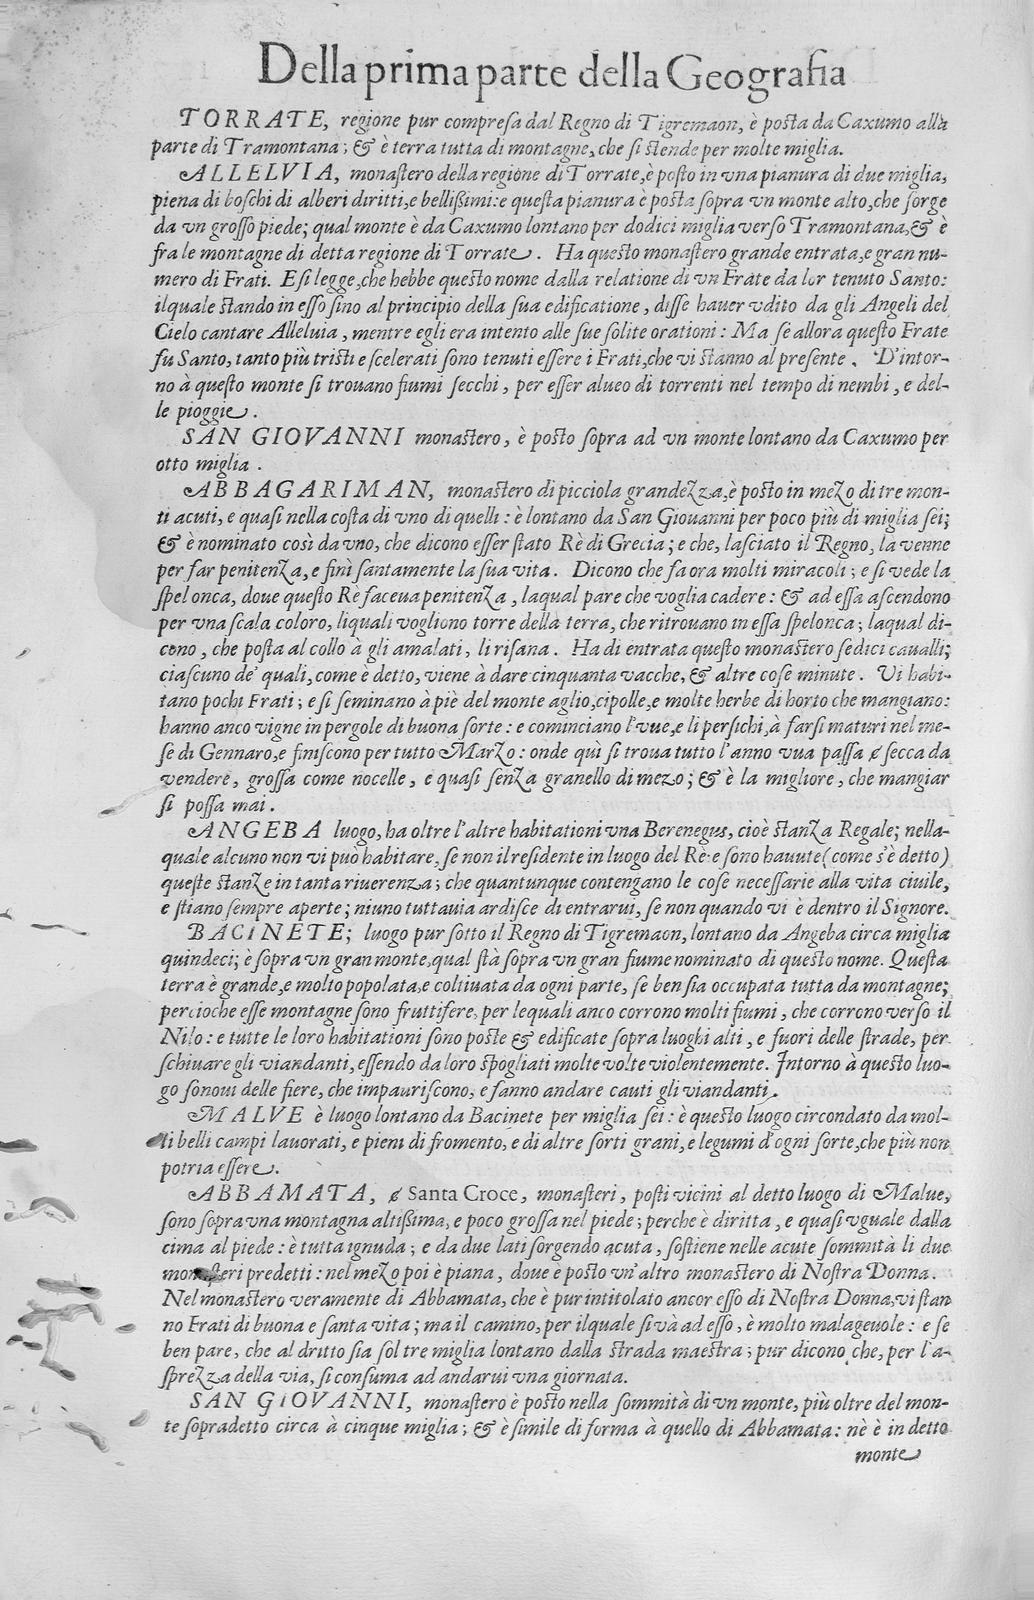 Della prima parte della Geografia
TORRATE, regione pur compresa dal Regno di Tigremaon, è posta da Caxumo alla
parte di Tramontana; & è terra tutta di montagne, che si stende per molte miglia.
ALLELVIA, monastero della regione di Torrate, è posto in vna pianura di due miglia,
piena di boschi di alberi diritti, e bellißimi: e questa pianura è posta sopra vn monte alto, che sorge
da vn grosso piede; qual monte è da Caxumo lontano per dodici miglia verso Tramontana, & è
fra le montagne di detta regione di Torrate. Ha questo monastero grande entrata, e gran nu-
mero di Frati. E si legge, che hebbe questo nome dalla relatione di vn Frate da lor tenuto Santo:
ilquale stando in esso sino al principio della sua edificatione, disse hauer vdito da gli Angeli del
Cielo cantare Alleluia, mentre egli era intento alle sue solite orationi: Ma se allora questo Frate
fu Santo, tanto più tristi e scelerati sono tenuti essere i Frati, che vi stanno al presente. D'intor-
no à questo monte si trouano fiumi secchi, per esser alueo di torrenti nel tempo di nembi, e del-
le pioggie.
SAN GIOVANNI monastero, è posto sopra ad vn monte lontano da Caxumo per
otto miglia.
ABBAGARIMAN, monastero di picciola grandezza, è posto in mezo di tre mon-
ti acuti, e quasi nella costa di vno di quelli: è lontano da San Giouanni per poco più di miglia sei;
& è nominato così da vno, che dicono esser stato Rè di Grecia; e che, lasciato il Regno, la venne
per far penitenza, e finì santamente la sua vita. Dicono che fa ora molti miracoli; e si vede la
spelonca, doue questo Rè faceua penitenza, laqual pare che voglia cadere: & ad essa ascendono
per vna scala coloro, liquali vogliono torre della terra, che ritrouano in essa spelonca; laqual di-
cono, che posta al collo à gli amalati, li risana. Ha di entrata questo monastero sedici caualli;
ciascuno de' quali, come è detto, viene à dare cinquanta vacche, & altre cose minute. Vi habi-
tano pochi Frati; e si seminano à piè del monte aglio, cipolle, e molte herbe di horto che mangiano:
hanno anco vigne in pergole di buona sorte: e cominciano l'vue, e li persichi, à farsi maturi nel me-
se di Gennaro, e finiscono per tutto Marzo: onde quì si troua tutto l'anno vua passa e secca da
vendere, grossa come nocelle, e quasi senza granello di mezo; & è la migliore, che mangiar
si possa mai.
ANGEBA luogo, ha oltre l'altre habitationi vna Berenegus, cioè stanza Regale; nella-
quale alcuno non vi può habitare, se non il residente in luogo del Rè: e sono hauute (come s'è detto)
queste stanze in tanta riuerenza; che quantunque contengano le cose necessarie alla vita ciuile,
e stiano sempre aperte; niuno tuttauia ardisce di entrarui, se non quando vi è dentro il Signore.
BACINETE; luogo pur sotto il Regno di Tigremaon, lontano da Angeba circa miglia
quindeci; è sopra vn gran monte, qual stà sopra vn gran fiume nominato di questo nome. Questa
terra è grande, e molto popolata, e coltiuata da ogni parte, se ben sia occupata tutta da montagne;
percioche esse montagne sono fruttifere, per lequali anco corrono molti fiumi, che corrono verso il
Nilo: e tutte le loro habitationi sono poste & edificate sopra luoghi alti, e fuori delle strade, per
schiuare gli viandanti, essendo da loro spogliati molte volte violentemente. Intorno à questo luo-
go sonoui delle fiere, che impauriscono, e fanno andare cauti gli viandanti.
MALVE è luogo lontano da Bacinete per miglia sei: è questo luogo circondato da mol-
ti belli campi lauorati, e pieni di fromento, e di altre sorti grani, e legumi d'ogni sorte, che più non
potria essere.
ABBAMATA, e Santa Croce, monasteri, posti vicini al detto luogo di Malue,
sono sopra vna montagna altißima, e poco grossa nel piede; perche è diritta, e quasi vguale dalla
cima al piede: è tutta ignuda; e da due lati sorgendo acuta, sostiene nelle acute sommità li due
monasteri predetti: nel mezo poi è piana, doue è posto vn'altro monastero di Nostra Donna.
Nel monastero veramente di Abbamata, che è pur intitolato ancor esso di Nostra Donna, vi stan
no Frati di buona e santa vita; ma il camino, per ilquale si và ad esso, è molto malageuole: e se
ben pare, che al dritto sia sol tre miglia lontano dalla strada maestra; pur dicono che, per l'a-
sprezza della via, si consuma ad andarui vna giornata.
SAN GIOVANNI, monastero è posto nella sommità di vn monte, più oltre del mon-
te sopradetto circa à cinque miglia; & è simile di forma à quello di Abbamata: nè è in detto
monte